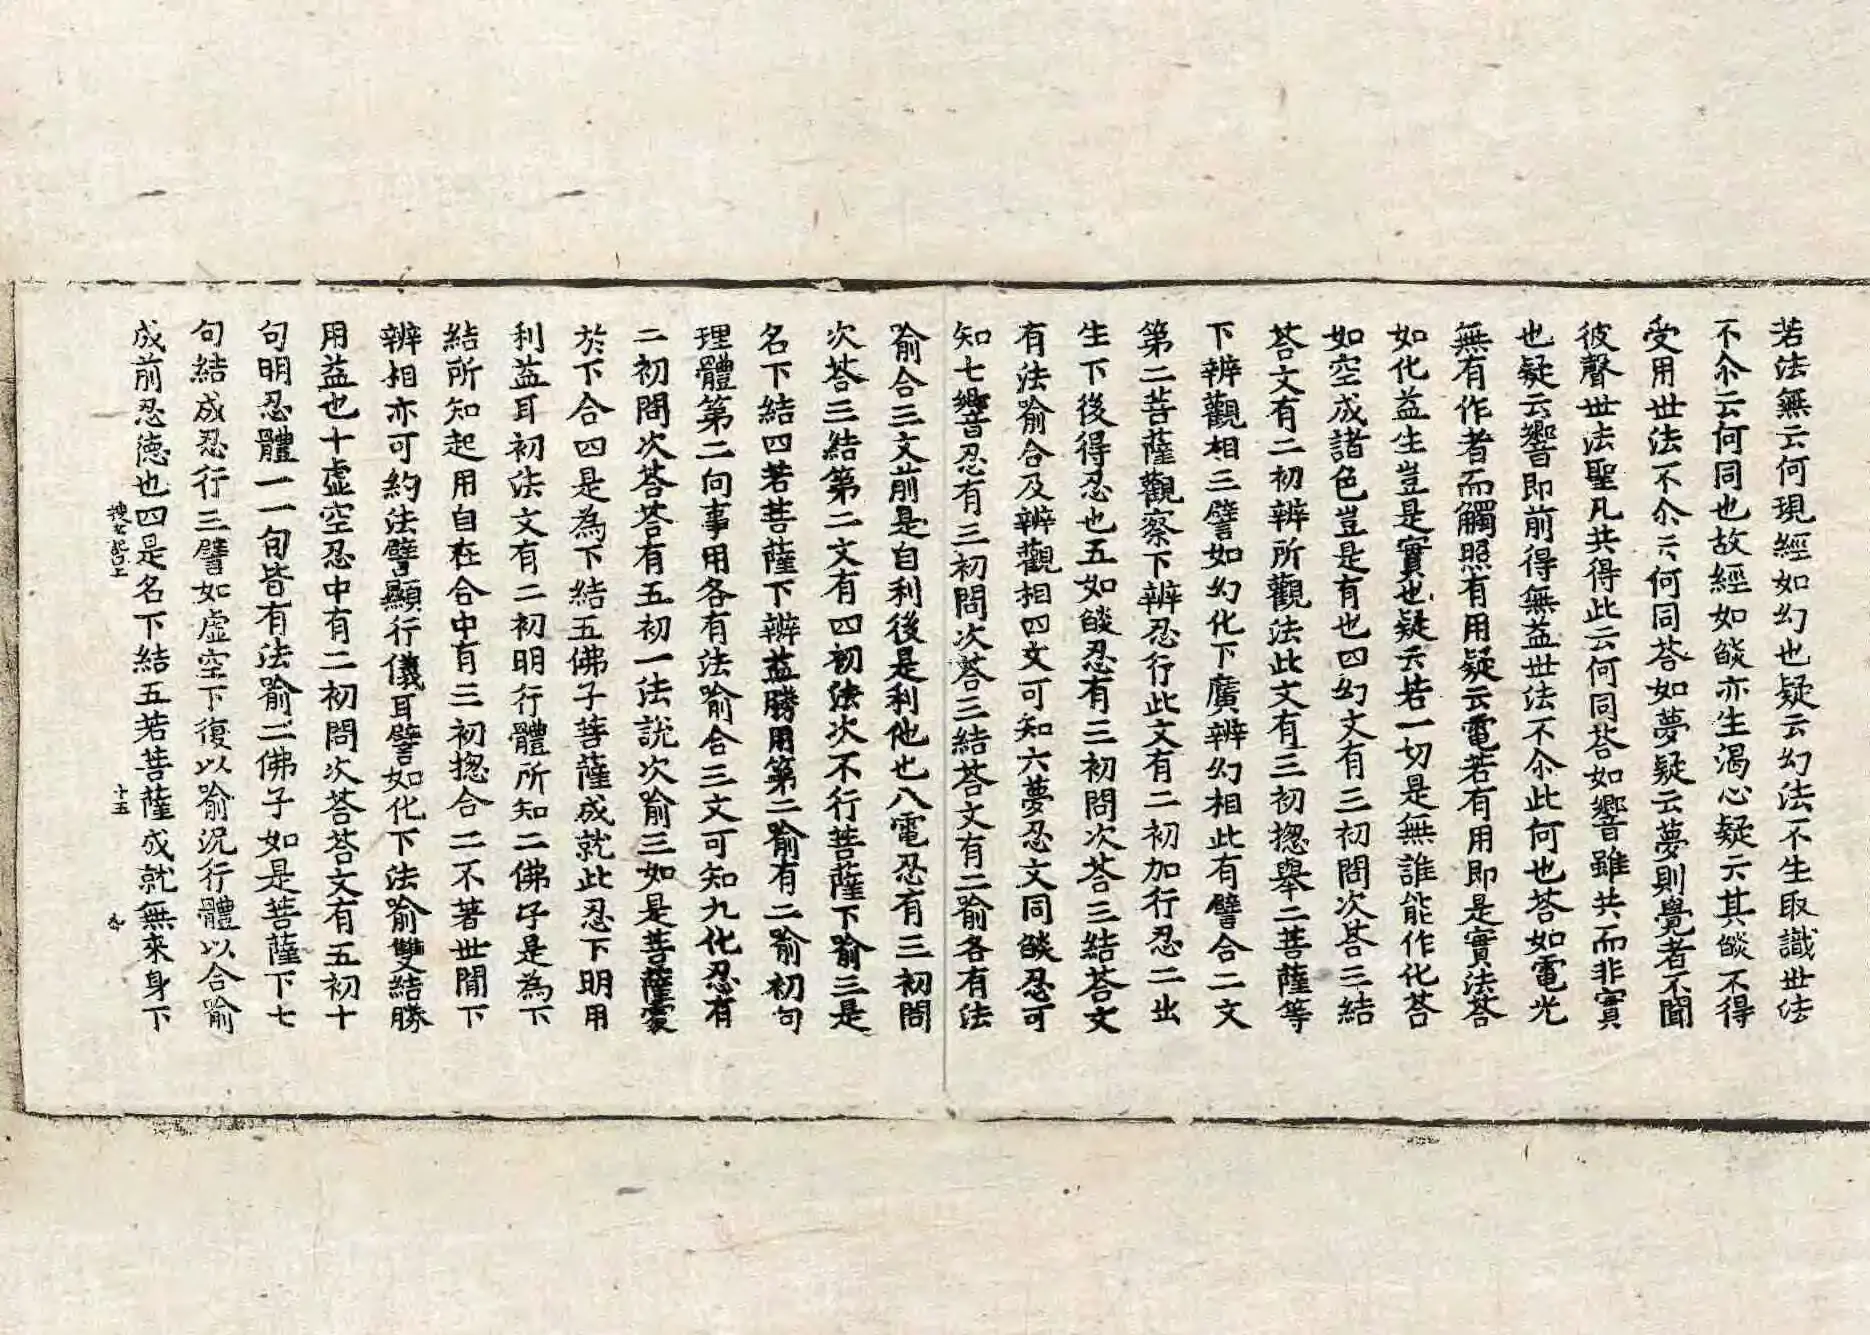 若法無云何現經如幻也疑云幻法不生取識世法
不尒云何同也故經如燄亦生渴心疑云其燄不得
受用世法不尒云何同荅如夢疑云夢則覺者不聞
彼聲世法聖凡共得此云何同荅如響雖共而非實
也疑云響即前得無益世法不尒此何也荅如電光
無有作者而觸照有用疑云電若有用即是實法荅
如化益生豈是實也疑云若一切是無誰能作化荅
如空成諸色豈是有也四幻文有三初問次荅三結
荅文有二初辨所觀法此文有三初揔舉二菩薩等
下辨觀相三譬如幻化下廣辨幻相此有譬合二文
第二菩薩觀察下辨忍行此文有二初加行忍二出
生下後得忍也五如燄忍有三初問次荅三結荅文
有法喻合及辨觀相四文可知六夢忍文同燄忍可
知七響忍有三初問次荅三結荅文有二喻各有法
喻合三文前是自利後是利他也八電忍有三初問
次荅三結第二文有四初法次不行菩薩下喻三是
名下結四若菩薩下辨益勝用第二喻有二喻初句
理體第二向事用各有法喻合三文可知九化忍有
二初問次荅荅有五初一法說次喻三如是菩薩蒙
於下合四是為下結五佛子菩薩成就此忍下明用
利益耳初法文有二初明行體所知二佛子是為下
結所知起用自在合中有三初揔合二不著世間下
辨相亦可約法譬顯行儀耳譬如化下法喻雙結勝
用益也十虛空忍中有二初問次荅荅文有五初十
句明忍體一一句皆有法喻二佛子如是菩薩下七
句結成忍行三譬如虛空下復以喻況行體以合喻
成前忍德也四是名下結五若菩薩成就無來身下
十五